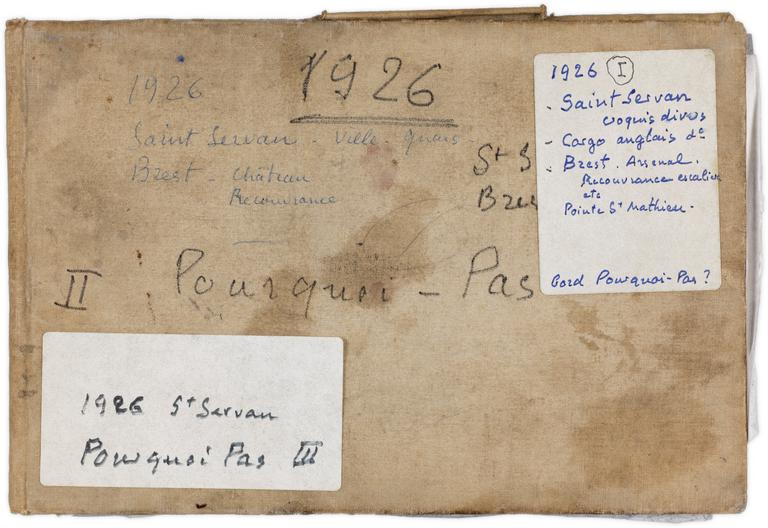 1926
1926
Saint Servan - Ville - quais -
Brest - Château
Recouvrance
St S
Bres
II Pourquoi - Pas
1926 I
- Saint Servan
croquis divers
- Cargo anglais do
- Brest. Arsenal.
Recouvrance escalier
etc
Pointe St Mathieu -
bord Pourquoi-Pas ?
1926 St Servan
Pourquoi Pas III